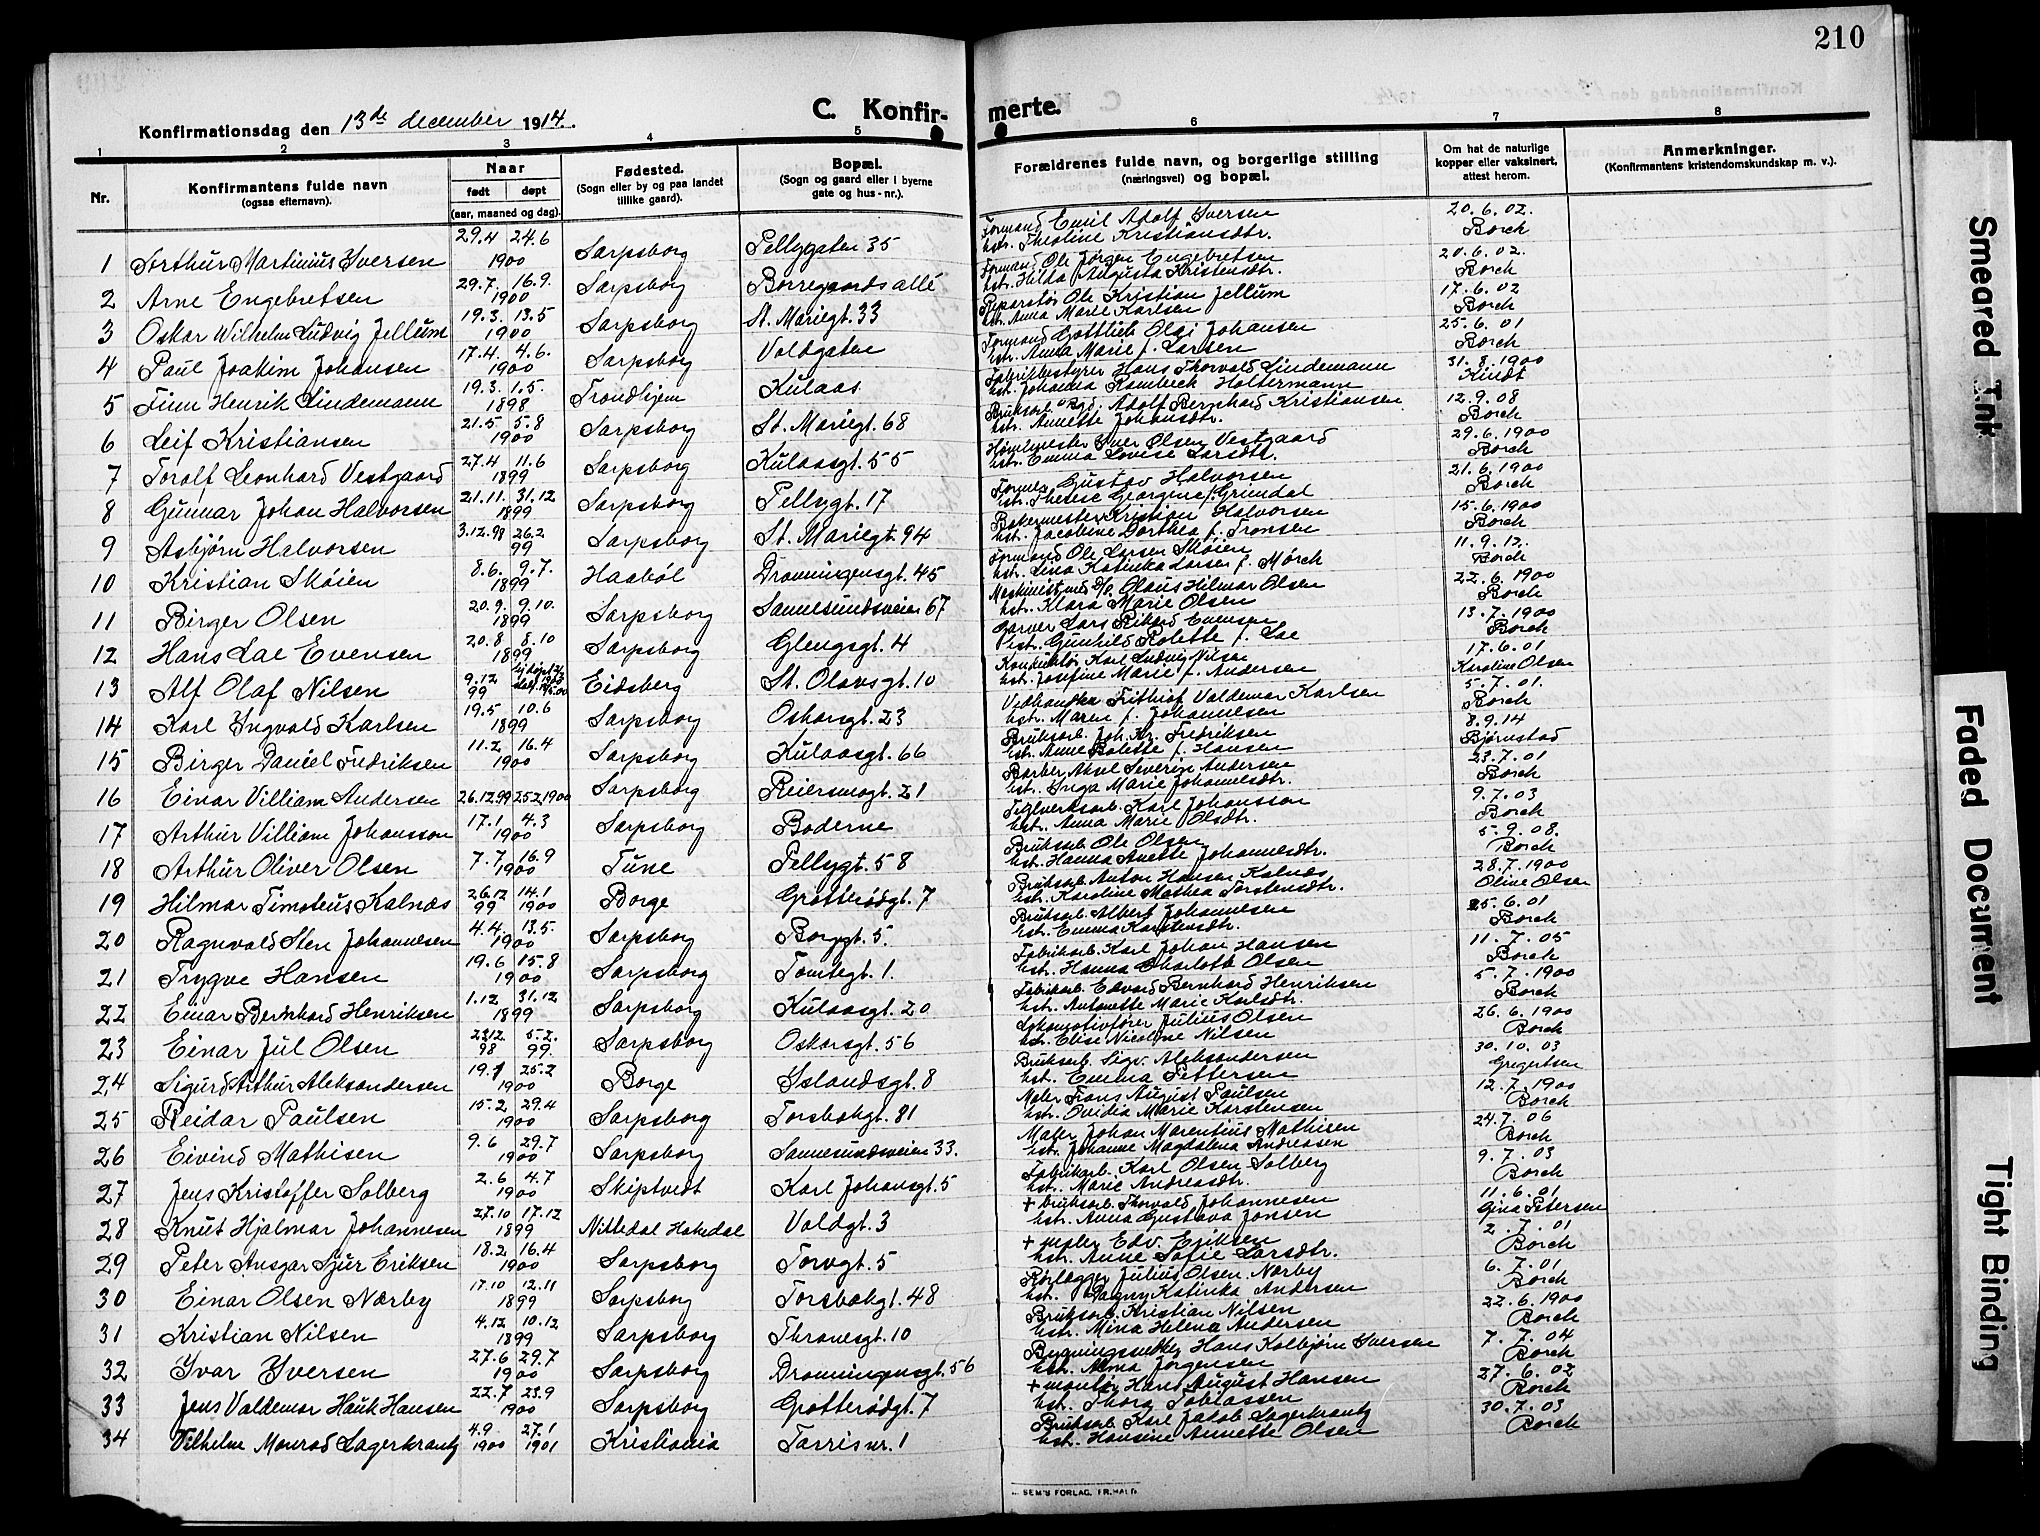 210
C. Konfirmerte.
Konfirmationsdag den 13de december 1914.
1 2 3 4 5 6 7 8
Nr.
Konfirmantens fulde navn
(ogsaa efternavn).
Naar
født døpt
(aar, maaned og dag).
Fødested.
(Sogn eller by og paa landet
tillike gaard).
Bopæl.
(Sogn og gaard eller i byerne
gate og hus-nr.).
Forældrenes fulde navn, og borgerlige stilling
(næringsvei) og bopæl.
Om hat de naturlige
kopper eller vaksinert,
attest herom.
Anmerkninger.
(Konfirmantens kristendomskundskap m. v.).
1 Arthur Martinius Iversen 29.4 24.6 1900 Sarpsborg Pellygaten 35 Formand Emil Adolf Iversen hstr. Theoline Kristiansdtr. 20.6.02. Borch
2 Arne Engebretsen 29.7. 16.9. 1900 Sarpsborg Borregaards allé Formand Ole Jørgen Engebretsen hstr. Hilda Augusta Kristensdtr. 20.6.02. Borch
3 Oskar Wilhelm Ludvig Jellum 19.3. 13.5 1900 Sarpsborg St. Mariegt. 33 Ole Kristian Jellum hstr. Anna Marie Karlsen 17.6.02 Borch
4 Paul Joakim Johansen 17.4. 4.6. 1900 Sarpsborg Voldgaten Formand Gottlieb Olai Johansen hstr. Anna Marie f. Larsen 25.6.01 Borch
5 Finn Henrik Lindemann 19.3. 1.5. 1898 Trondhjem Kulaas Fabrikbestyrer Hans Thorvald Lindemann hstr. Johanna Rambech Holtermann 31.8.1900 Kindt
6 Leif Kristiansen 21.5 5.8 1900 Sarpsborg St. Mariegt. 68 Bruksarb. Adolf Bernhard Kristiansen hstr. Annette Johansdtr. 12.9.08 Borch
7 Toralf Leonhard Vestgaard 27.4 11.6 1899 Sarpsborg Kulaasgt. 55 Høvlmester Iver Olsen Vestgaard hstr. Emma Lovise Larsdtr. 29.6.1900 Borch
8 Gunnar Johan Halvorsen 21.11. 31.12 1899 Sarpsborg Pellygt. 17 Former Gustav Halvorsen hstr. Therese Georgine f. Grimdal 21.6.1900 Borch
9 Asbjørn Halvorsen 3.12.98 26.2 99 Sarpsborg St. Mariegt. 94 Bakermester Kristian Halvorsen hstr. Jacobine Dorthea f. Tronsen 15.6.1900 Borch
10 Kristian Sköien 8.6. 9.7. 1899 Haaböl Dronningensgt. 45 Formand Ole Larsen Sköien hstr. Lina Katinka Larsen f. Mørch 11.9.12. Borch
11 Birger Olsen 20.9. 9.10. 1899 Sarpsborg Sannesundsveien 67 Maskinist Olaus Hilmar Olsen hstr. Klara Marie Olsen 22.6.1900 Borch
12 Hans Lae Evensen 20.8 8.10 1899 Sarpsborg Glengsgt. 4 Garver Lars Rikard Evensen hstr. Gunhild Rolette f. Lae 13.7.1900 Borch
13 Alf Olaf Nilsen 9.12 99 Eidsberg St. Olavsgt. 10 Konduktör Karl Ludvig Nilsen hstr. Josefine Marie f. Andersen 17.6.01 Karoline Olsen
14 Karl Ingvald Karlsen 19.5 10.6 1899 Sarpsborg Oskarsgt. 23 Vedhandler Frithjof Valdemar Karlsen hstr. Maren f. Johannesen 5.7.01. Borch
15 Birger Daniel Fredriksen 11.2 16.4 1900 Sarpsborg Kulaasgt. 66 Bruksarb. Joh. Kr. Fredriksen hstr. Anne Bolette f. Hansen 8.9.14 Bjørnstad
16 Einar Villiam Andersen 26.12.99 25.2.1900 Sarpsborg Reiersmogt. 21 Barber Aksel Severin Andersen hstr. Inga Marie Johannesdtr. 23.7.01 Borch
17 Arthur Villiam Johansson 17.1 4.3 1900 Sarpsborg Boderne Teglverksarb. Karl Johansson hstr. Anna Marie Olsdtr. 9.7.03 Borch
18 Arthur Oliver Olsen 7.7. 16.9 1900 Tune Pellygt. 58 Bruksarb. Ole Olsen hstr. Hanna Anette Johannesdtr. 5.9.08. Borch
19 Hilmar Timoteus Kalnæs 26.12 99 14.1 1900 Borge Grotterødgt. 7 Bruksarb. Anton Hansen Kalnæs hstr. Karoline Mathea Torstensdtr. 28.7.1900 Olive Olsen
20 Ragnvald Sten Johannesen 4.4. 13.5. 1900 Sarpsborg Borggt. 5. Bruksarb. Albert Johannesen hstr. Emma Karstensdtr. 25.6.01 Borch
21 Trygve Hansen 19.6 15.8 1900 Sarpsborg Tomtegt. 1. Fabrikarb. Karl Johan Hansen hstr. Hanna Charlotte Olsen 11.7.05 Borch
22 Einar Bernhard Henriksen 1.12 31.12 1899 Sarpsborg Kulaasgt. 20 Fabrikarb. Edvard Bernhard Henriksen hstr. Antonette Marie Karlsdtr. 5.7.1900 Borch
23 Einar Jul Olsen 22.12. 98 5.2. 99. Sarpsborg Oskarsgt. 56 Lokomotivfører Julius Olsen hstr. Elise Nicoline Nilsen 26.6.1900 Borch
24 Sigurd Arthur Aleksandersen 19.1 25.2 1900 Borge Islandsgt. 8 Bruksarb. Sigv. Aleksandersen hstr. Emma Pettersen 30.10.03 Gregertsen
25 Reidar Paulsen 15.2 29.4 1900 Sarpsborg Torsbakgt. 81 Maler Frans August Paulsen hstr. Ovidia Marie Karstensen 12.7.1900 Borch
26 Eivind Mathisen 9.6 29.7 1900 Sarpsborg Sannesundsveien 33. Maler Johan Marentius Mathisen hstr. Johanne Magdalena Andreasen 24.7.06 Borch
27 Jens Kristoffer Solberg 2.6 4.7 1900 Skiptvedt Karl Johansgt. 5 Fabrikarb. Karl Olsen Solberg hstr. Marie Andreasdtr. 9.7.03 Borch
28 Knut Hjalmar Johannesen 27.10 17.12 1899 Nittedal Hakedal Voldgt. 3 + bruksarb. Thorvald Johannesen hstr. Anna Gustava Jonsen 11.6.01 Gina Petersen
29 Peter Ansgar Sjur Eriksen 18.2 16.4 1900 Sarpsborg Torvgt. 5 + maler Edv. Eriksen hstr. Anne Sofie Larsdtr. 2.7.01 Borch
30 Einar Olsen Nærby 17.10 12.11 1899 Sarpsborg Torsbakgt. 48 Rørlægger Julius Olsen Nærby hstr. Dagny Katinka Andersen 6.7.01 Borch
31 Kristian Nilsen 4.12 10.12 1899 Sarpsborg Thranesgt. 10 Bruksarb. Kristian Nilsen hstr. Mina Helena Andersen 22.6.1900 Borch
32 Ivar Iversen 27.6 29.7 1900 Sarpsborg Dronningensgt. 56 Hans Kolbjørn Iversen hstr. Alma Jørgensen 7.7.04 Borch
33 Jens Valdemar Hauk Hansen 22.7 23.9 1900 Sarpsborg Grotterødgt. 7 + montör Hans August Hansen hstr. Thora Tobiassen 27.6.02 Borch
34 Vilhelm Monrad Lagerkrantz 4.9 1900 27.1 1901 Kristiania Tarris nr. 1 Bruksarb. Karl Jakob Lagerkrantz hstr. Hansine Annette Olsen 30.7.03 Borch
SEM'S FORLAG, FR.HALD.
Smeared Ink
Faded Document
Tight Binding